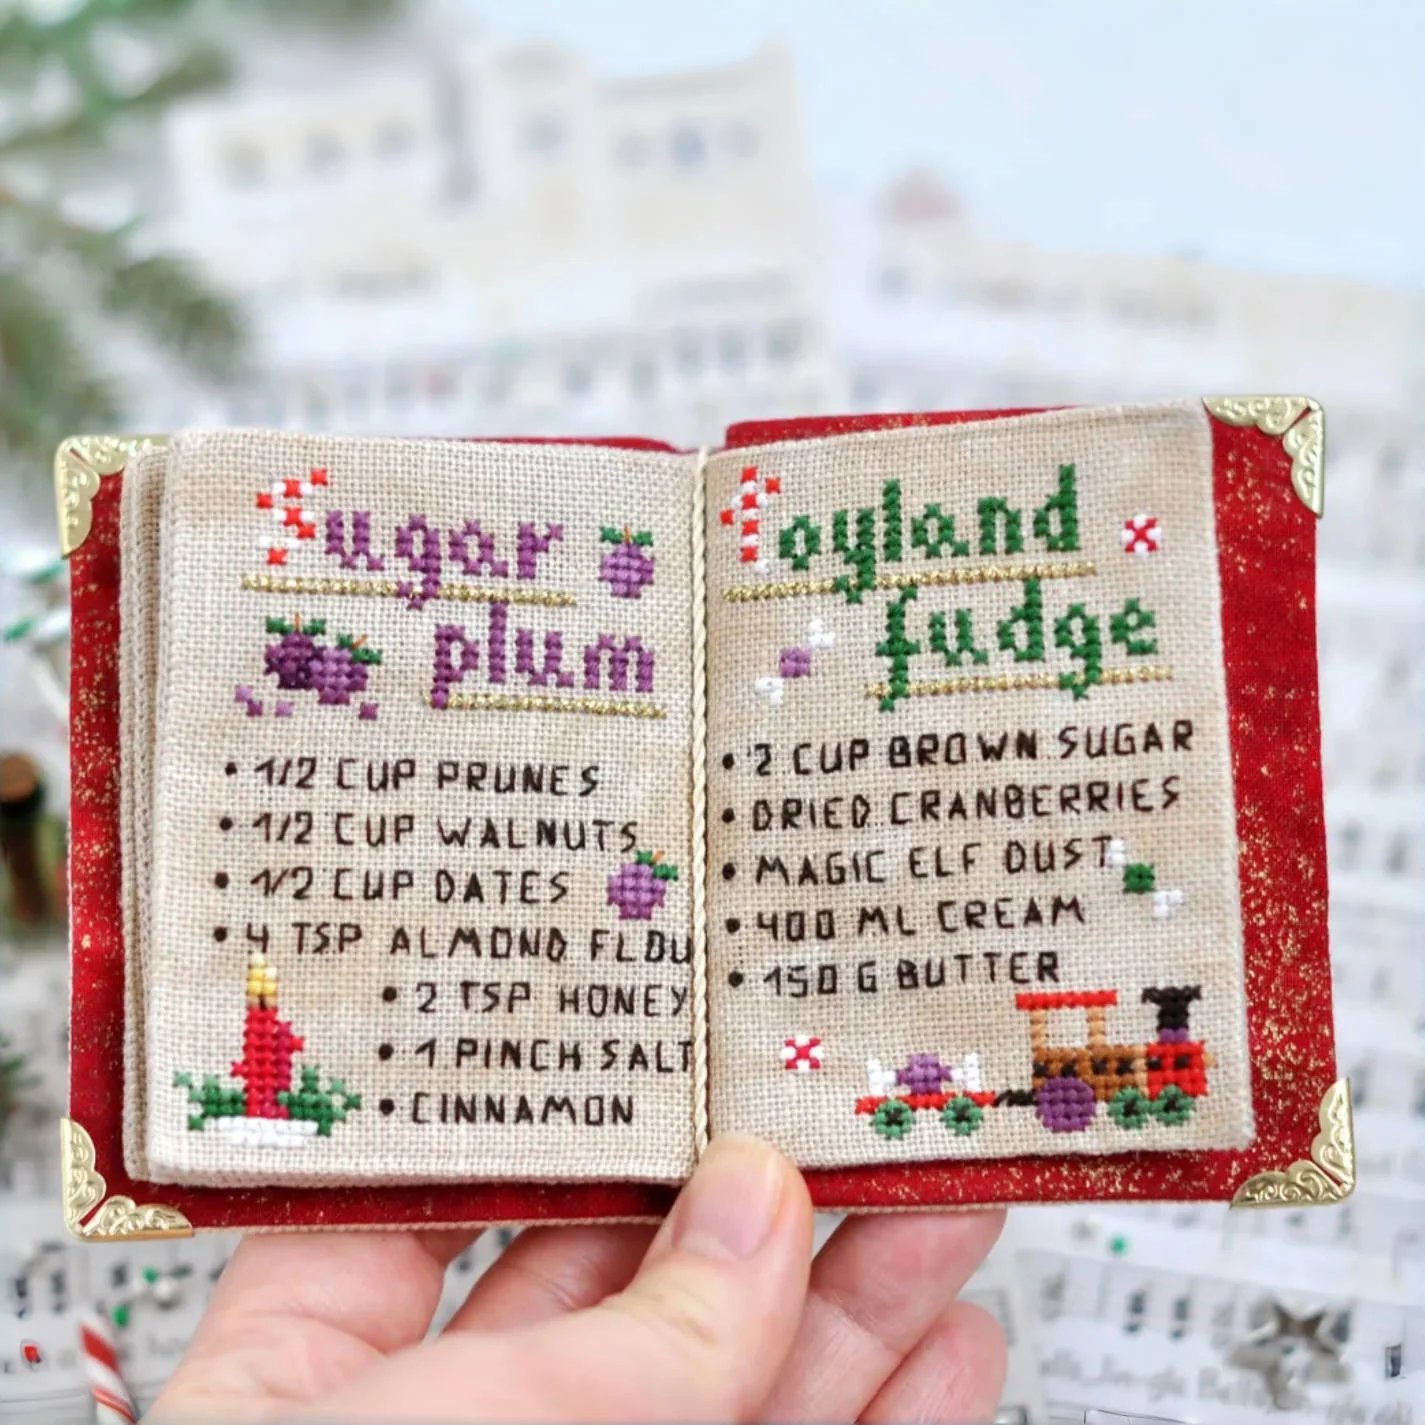 Sugar
plum
• 1/2 CUP PRUNES
• 1/2 CUP WALNUTS
• 1/2 CUP DATES
• 4 TSP ALMOND FLOU
• 2 TSP HONEY
• 1 PINCH SALT
• CINNAMON
Toyland
fudge
• 2 CUP BROWN SUGAR
• DRIED CRANBERRIES
• MAGIC ELF DUST
• 400 ML CREAM
• 150 G BUTTER